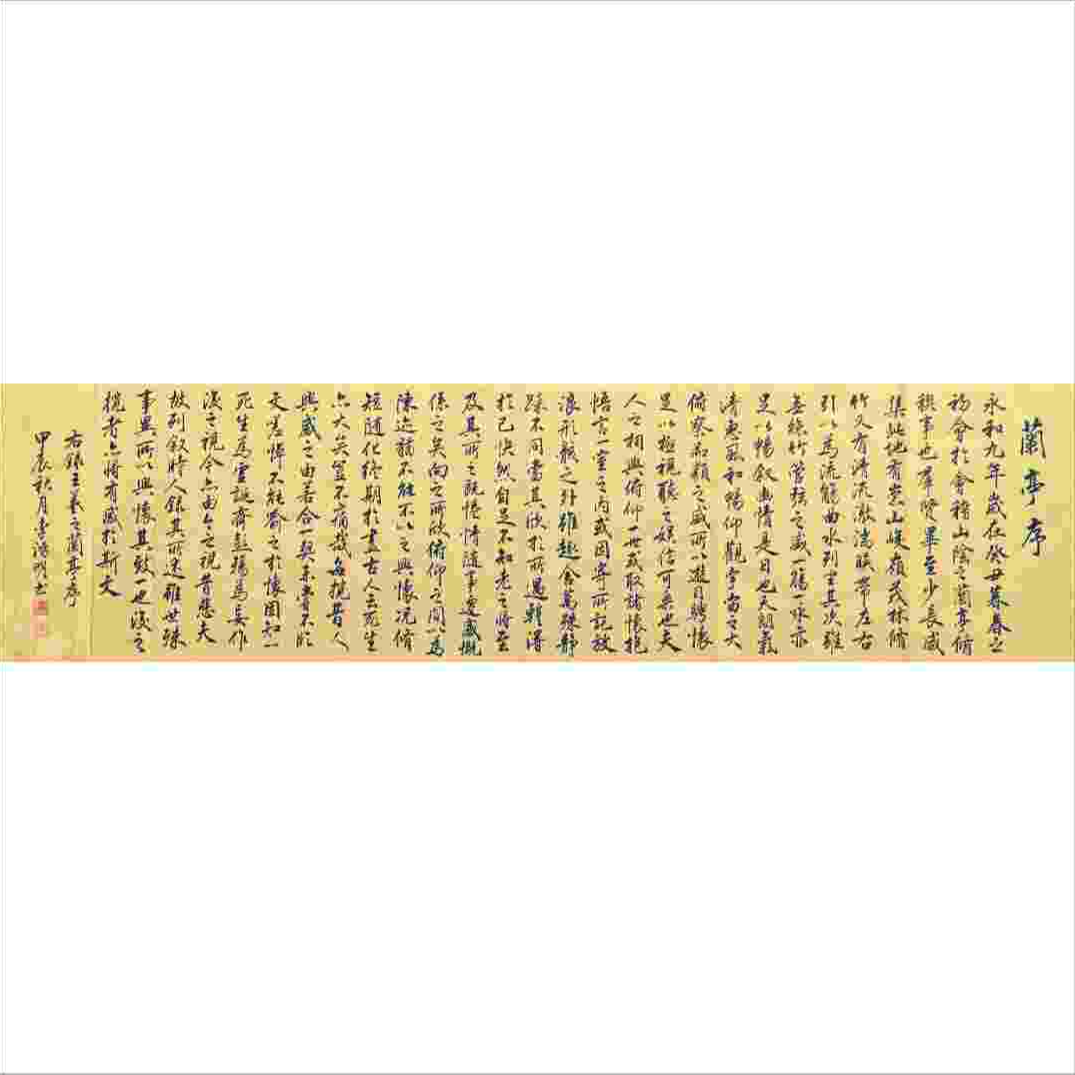 蘭亭序
永和九年歲在癸丑暮春之
初會於會稽山陰之蘭亭脩
稧事也羣賢畢至少長咸
集此地有崇山峻嶺茂林脩
竹又有清流激湍暎帶左右
引以為流觴曲水列坐其次雖
無絲竹管絃之盛一觴一詠亦
足以暢敘幽情是日也天朗氣
清惠風和暢仰觀宇宙之大
俯察品類之盛所以遊目騁懷
足以極視聽之娛信可樂也夫
人之相與俯仰一世或取諸懷抱
悟言一室之內或因寄所託放
浪形骸之外雖趣舍萬殊靜
躁不同當其欣於所遇暫得
於己快然自足不知老之將至
及其所之既惓情隨事遷感慨
係之矣向之所欣俯仰之間以為
陳迹猶不能不以之興懷況脩
短隨化終期於盡古人云死生
亦大矣豈不痛哉每攬昔人
興感之由若合一契未嘗不臨
文嗟悼不能喻之於懷固知一
死生為虛誕齊彭殤為妄作
後之視今亦由今之視昔悲夫
故列敘時人錄其所述雖世殊
事異所以興懷其致一也後之
攬者亦將有感於斯文
右錄王羲之蘭亭序
甲辰秋月李